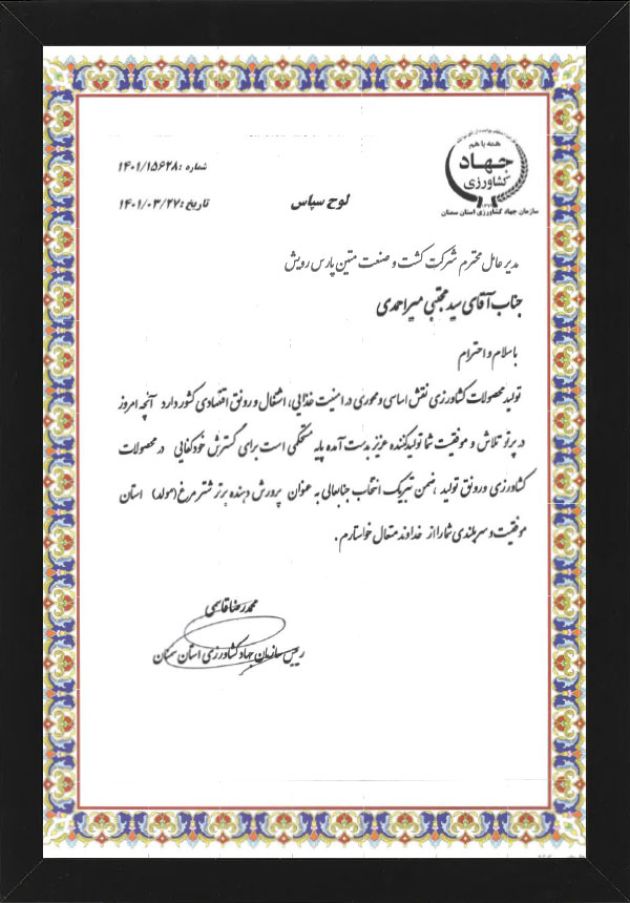 همه با هم
جهاد
کشاورزی
سازمان جهاد کشاورزی استان سمنان
شماره :۱۴۰۱/۱۵۶۲۸
تاریخ :۱۴۰۱/۰۳/۲۷
لوح سپاس
مدیر عامل محترم شرکت کشت و صنعت متین پارس رویش
جناب آقای سید مجتبی میراحمدی
با سلام و احترام
تولید محصولات کشاورزی نقش اساسی و محوری در امنیت غذایی، اشتغال و رونق اقتصادی کشور دارد آنچه امروز
در پرتو تلاش و موفقیت شما تولیدکننده عزیز بدست آمده پایه مستحکمی است برای گسترش خودکفایی در محصولات
کشاورزی و رونق تولید ،ضمن تبریک انتخاب جنابعالی به عنوان پرورش دهنده برتر شترمرغ (مولد) استان
موفقیت و سربلندی شما را از خداوند متعال خواستارم.
محمدرضا قاسمی
رییس سازمان جهاد کشاورزی استان سمنان